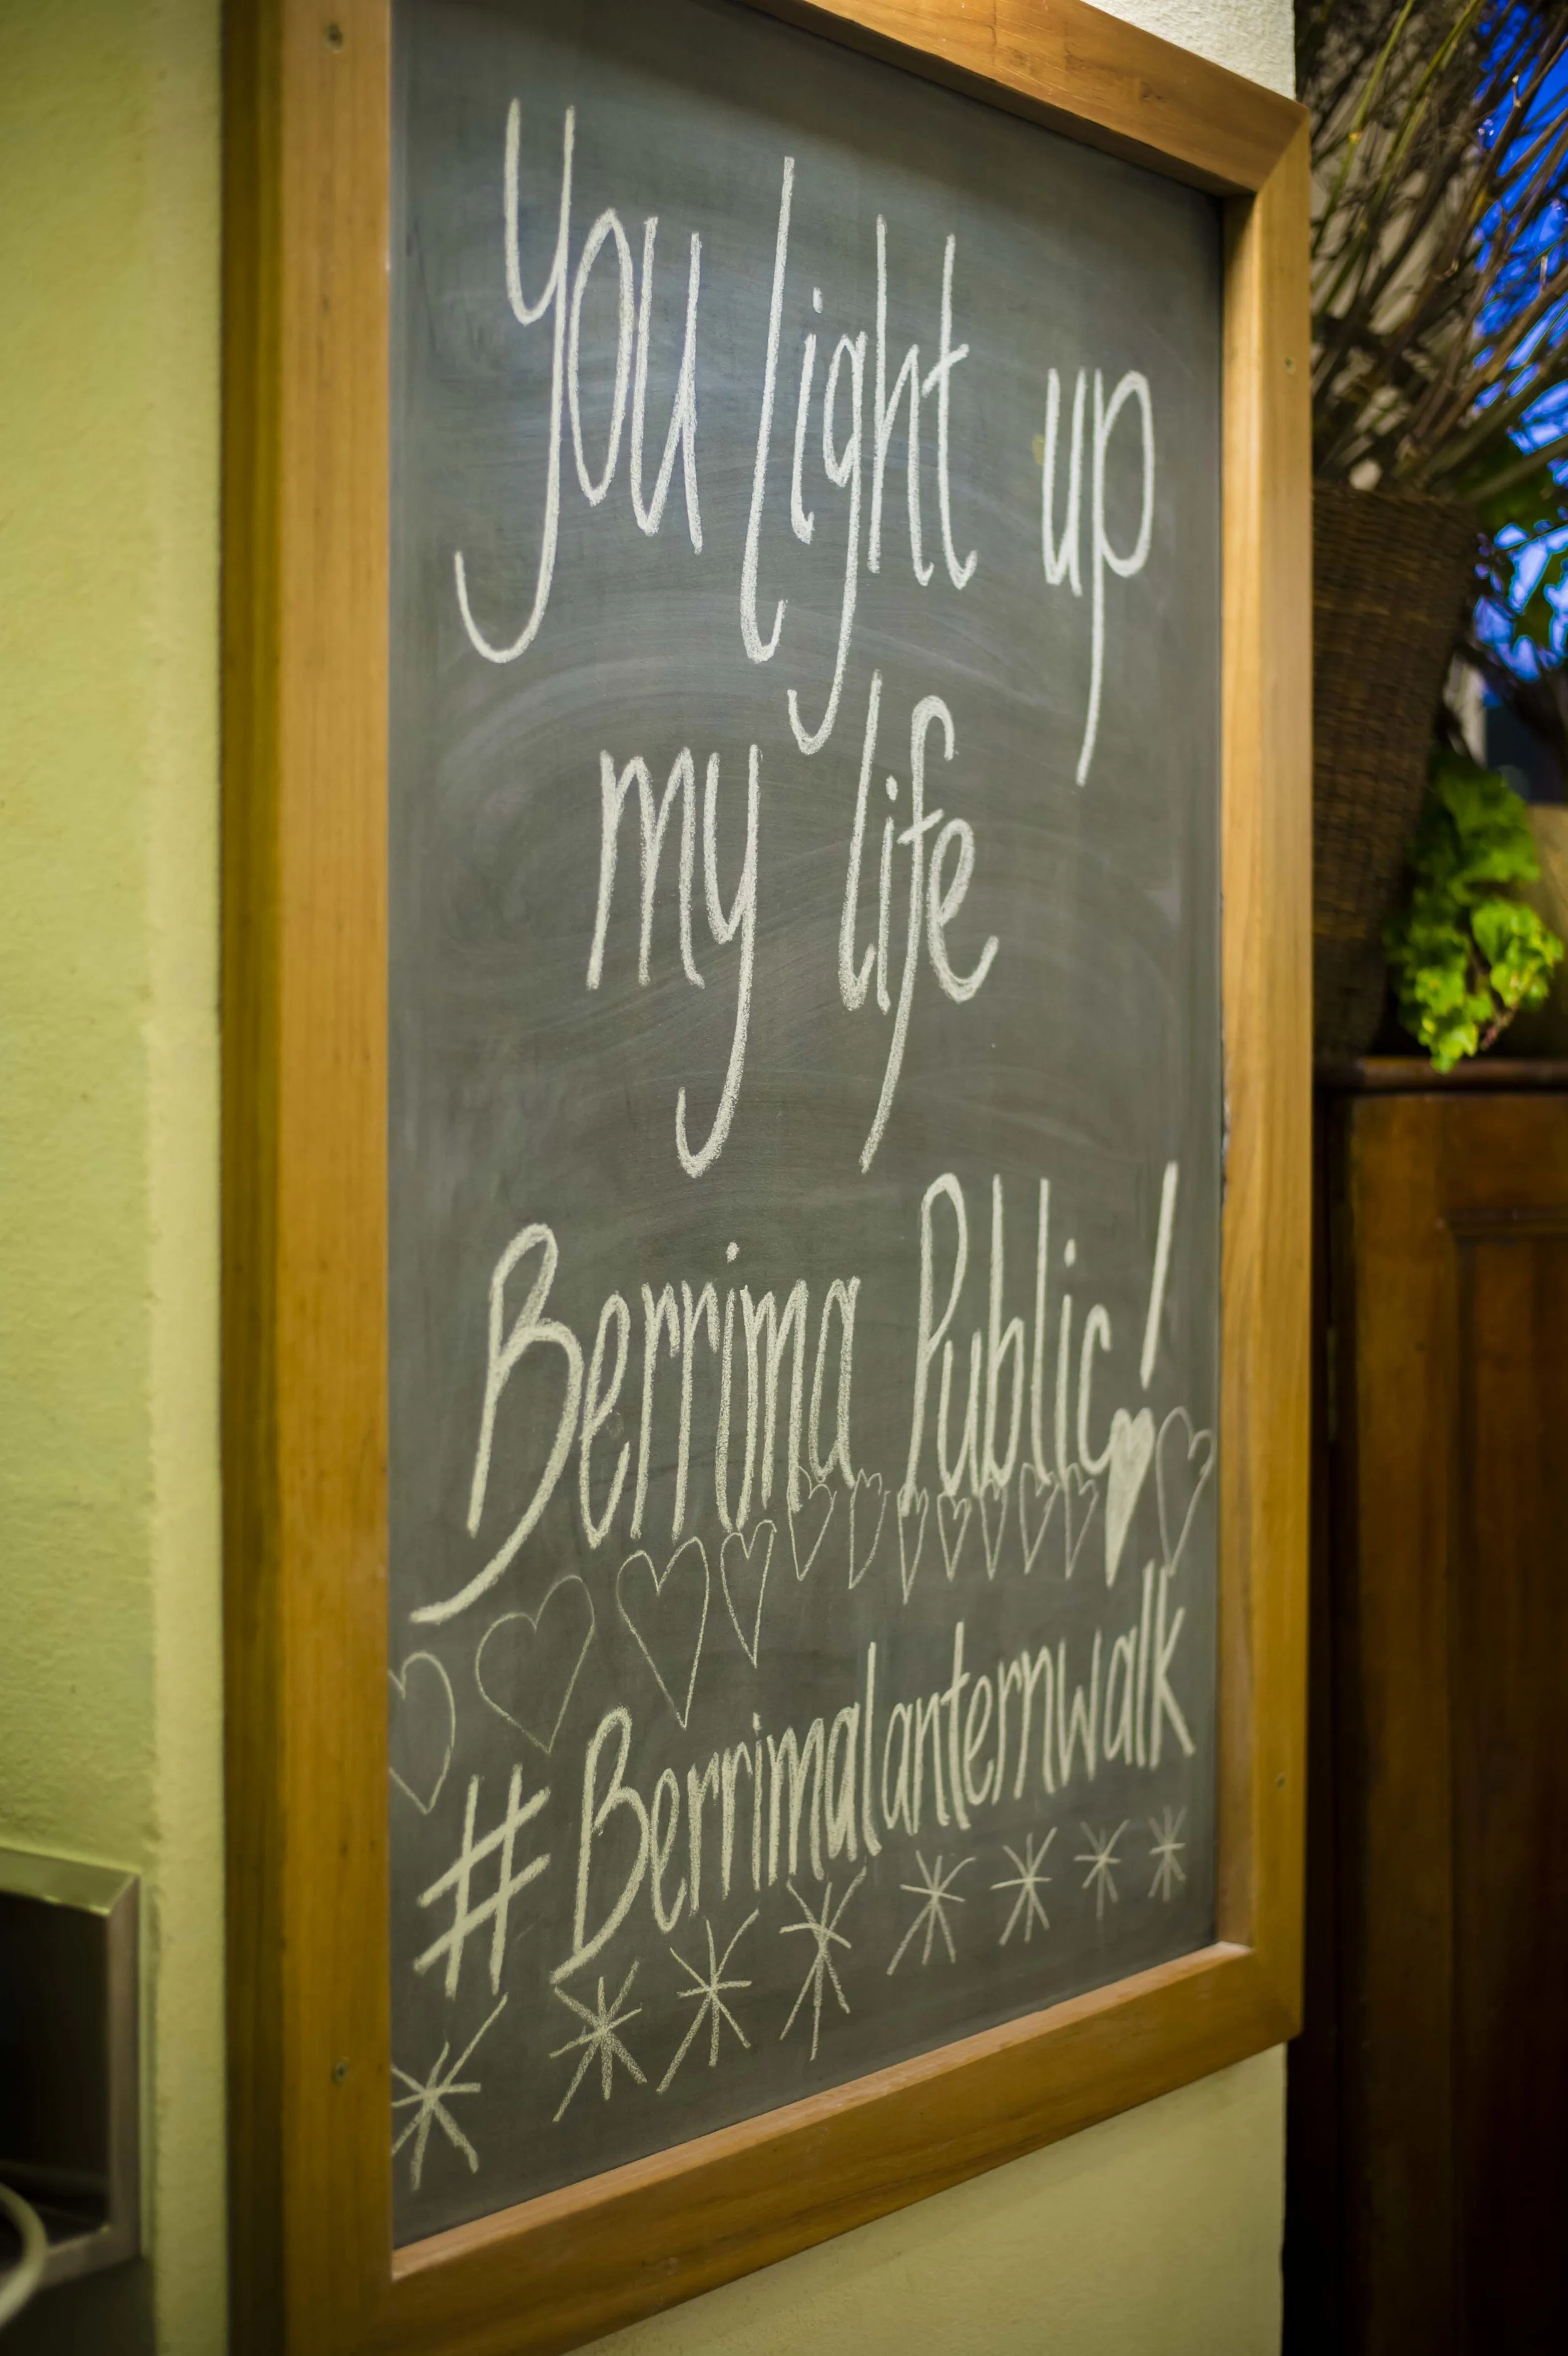 You light up
my life
Berrima Public!
#Berrimalanternwalk